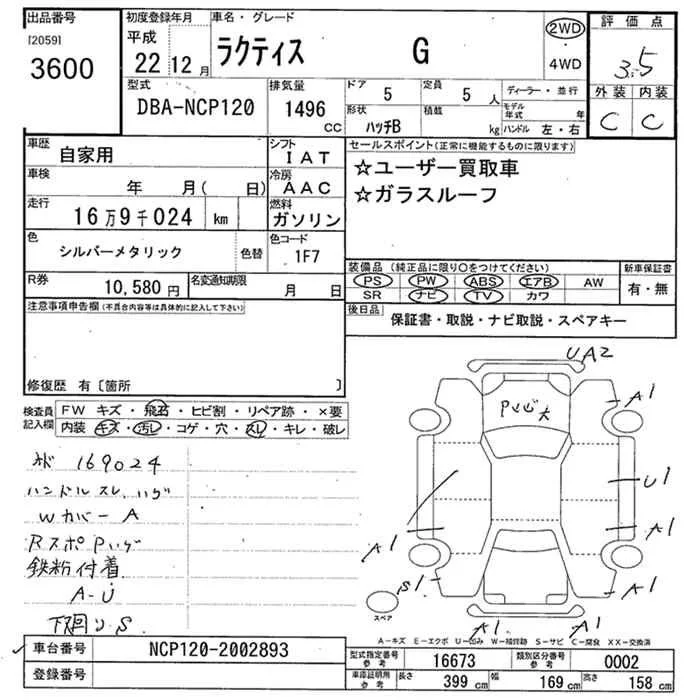 出品番号
[2059]
3600
初度登録年月
平成
22 12 月
車名・グレード
ラクティス G
2WD
・
4WD
評価点
3.5
外装 内装
C C
型式
DBA-NCP120
排気量
1496 CC
ドア
5
定員
5 人
形状
ハッチB
積載
kg
ディーラー・並行
モデル年式 年
ハンドル 左・右
車歴 自家用
車検 年 月( 日)
走行 16万9千024 km
色 シルバーメタリック 色替
シフト
IAT
冷房
AAC
燃料
ガソリン
色コード
1F7
R券 10,580円
名変通知期限 月 日
注意事項申告欄(不具合内容等は具体的に記入して下さい)
修復歴 有〔箇所 〕
セールスポイント(正常に機能するものに限ります)
☆ユーザー買取車
☆ガラスルーフ
装備品(純正品に限り○をつけてください)
PS PW ABS エアB AW
SR ナビ TV カワ
新車保証書
有・無
後日品 保証書・取説・ナビ取説・スペアキー
検査員記入欄
FW キズ・飛石・ヒビ割・リペア跡・×要
内装 キズ・汚レ・コゲ・穴・スレ・キレ・破レ
169024
ハンドルスレ、ハゲ
Wカバー A
RスポPハゲ
鉄粉付着
A-U
下廻り S
UA2
A1
U1
A1
A1
A1
S1
A1
A1
スペア
A−キズ E−エクボ U−凹み W−補修跡 S−サビ C−腐食 XX−交換済
車台番号 NCP120-2002893
登録番号
型式指定番号 参考 16673
類別区分番号 参考 0002
車庫証明用 参考
長さ 399 cm
幅 169 cm
高さ 158 cm